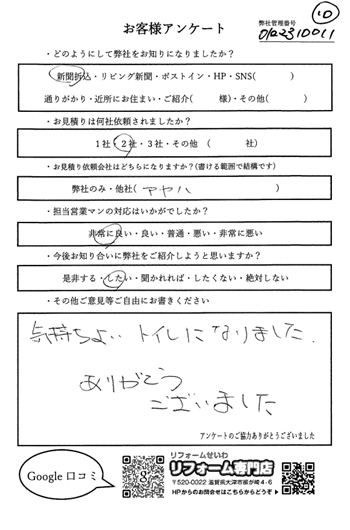 ⑩
お客様アンケート
弊社管理番号
・どのようにして弊社をお知りになりましたか？
新聞折込・リビング新聞・ポストイン・HP・SNS( )
通りがかり・近所にお住まい・ご紹介( 様)・その他( )
・お見積りは何社依頼されましたか？
1社・2社・3社・その他 ( 社)
・お見積り依頼会社はどちらになりますか？(書ける範囲で結構です)
弊社のみ・他社( アヤハ )
・担当営業マンの対応はいかがでしたか？
非常に良い・良い・普通・悪い・非常に悪い
・今後お知り合いに弊社をご紹介しようと思いますか？
是非する・したい・聞かれれば・したくない・絶対しない
・その他ご意見等ご自由にお書きください
気持ちよい トイレになりました.
ありがとう
ございました
アンケートのご協力ありがとうございました
Google 口コミ
g
リフォームせいわ
リフォーム専門店
〒520-0022 滋賀県大津市柳が崎4-6
HPからのお問合せはこちらからどうぞ ▶